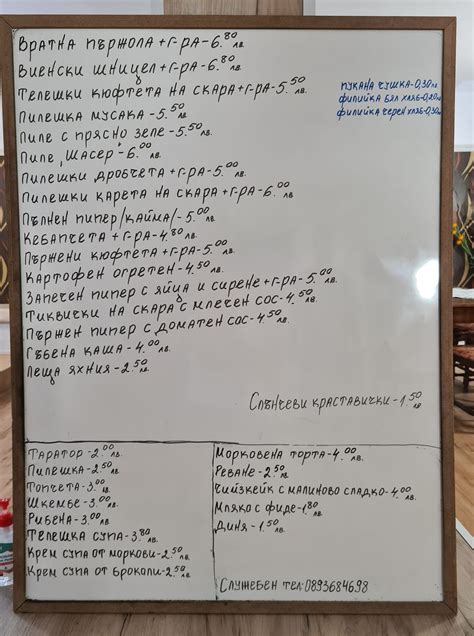 Вратна пържола + г-ра - 6.80 лв.
Виенски шницел + г-ра - 6.80 лв.
Телешки кюфтета на скара + г-ра - 5.50 лв.
Пилешка мусака - 5.50 лв.
Пиле с прясно зеле - 5.50 лв.
Пиле „Шасер" - 6.00 лв.
Пилешки дробчета + г-ра - 5.00 лв.
Пилешки карета на скара + г-ра - 6.00 лв.
Пълнен пипер /кайма/ - 5.00 лв.
Кебапчета + г-ра - 4.80 лв.
Пържени кюфтета + г-ра - 5.00 лв.
Картофен огретен - 4.50 лв.
Запечен пипер с яйца и сирене + г-ра - 5.00 лв.
Тиквички на скара с млечен сос - 4.50 лв.
Пържен пипер с доматен сос - 4.50 лв.
Гъбена каша - 4.00 лв.
Леща яхния - 2.50 лв.
Пукана чушка - 0,30 лв
филийка бял хляб - 0,20 лв
филийка черен хляб - 0,30 лв
Слънчеви краставички - 1.50 лв
Таратор - 2.00 лв.
Пилешка - 2.50 лв.
Топчета - 3.00 лв.
Шкембе - 3.00 лв.
Рибена - 3.00 лв.
Телешка супа - 3.80 лв.
Крем супа от моркови - 2.50 лв.
Крем супа от броколи - 2.50 лв.
Морковена торта - 4.00 лв.
Реване - 2.50 лв.
Чийзкейк с малиново сладко - 4.00 лв.
Мляко с фиде - 1.80 лв.
Диня - 1.50 лв.
Служебен тел: 0893684698